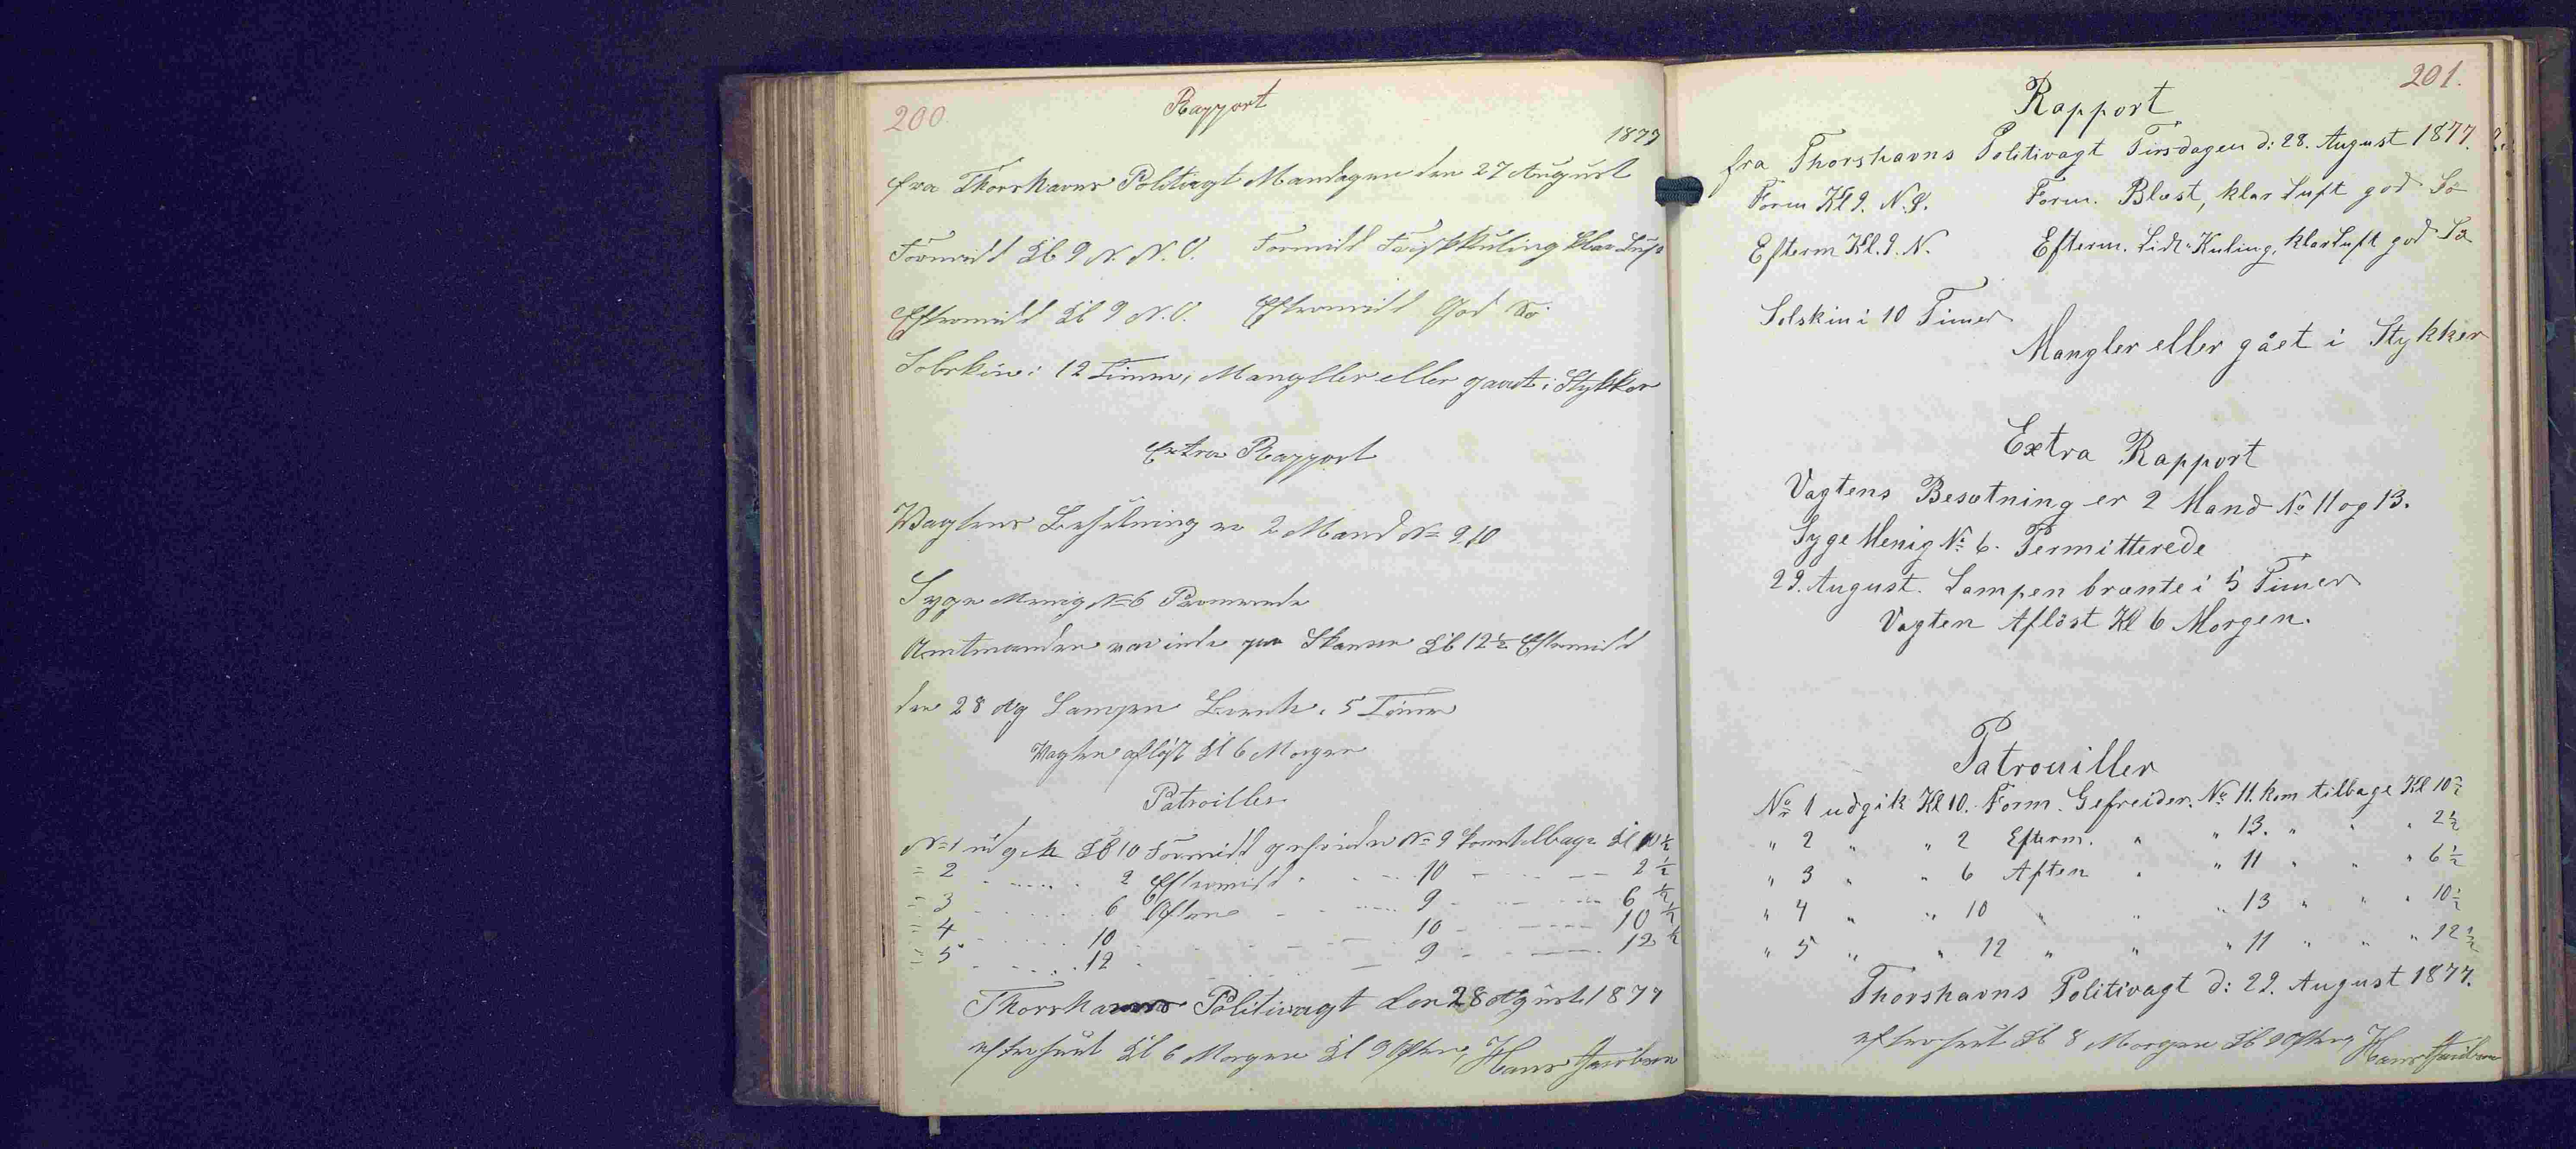 200
Rapport
1877
fra Thorshavns Politivagt Mandagen den 27 August
Formidd Kl 9 N. N. O. Formidd Friskkuling klar Luft
Eftromidd Kl 9 N. O. Eftromidd God Sö
Solskin i 12 Timer, Mangller eller gaaet i Stykker
Extra Rapport
Wagtens Besetning er 2 Mand № 9 10
Syge Menig № 6
Amtmanden var inde paa Skansen Kl 12½ Eftremidd
den 28 Lampen 5 Timer
Wagten afløst Kl 6 Morgen
Patroiller
№ 1 udgik Kl 10 Formidd gefreider № 9 kom tilbage Kl 10½
= 2 2 Eftromidd 10 2½
= 3 6 Aften 9 6½
= 4 10 10 10½
= 5 12 9 12½
Thorshavns Politivagt den 28 Agust 1877
efterseet Kl 6 Morgen Kl 9 Aften, Hans
201.
Rapport
fra Thorshavns Politivagt Tirsdagen d: 28. August 1877.
Form Kl 9. N.O. Form. Blæst, klar Luft god Sö
Efterm Kl. 9. N. Efterm. Lidt Kuling, klar Luft god Sø
Solskin i 10 Timer
Mangler eller gået i Stykker
Extra Rapport
Vagtens Besætning er 2 Mand № 11 og 13.
Syge Menig № 6. Permitterede
29. August. Lampen brænte i 5 Timer
Vagten Aflöst Kl 6 Morgen.
Patrouiller
№ 1 udgik Kl 10. Form. Gefreider. № 11. kom tilbage Kl 10½
" 2 " " 2 Efterm. " " 13. " " " 2½
" 3 " " 6 Aften " " 11 " " " 6½
" 4 " " 10 " " " 13 " " " 10½
" 5 " " 12 " " " 11 " " " 12½
Thorshavns Politivagt d: 29. August 1877.
efterseet Kl 8 Morgen Kl 9 Aften, Hans